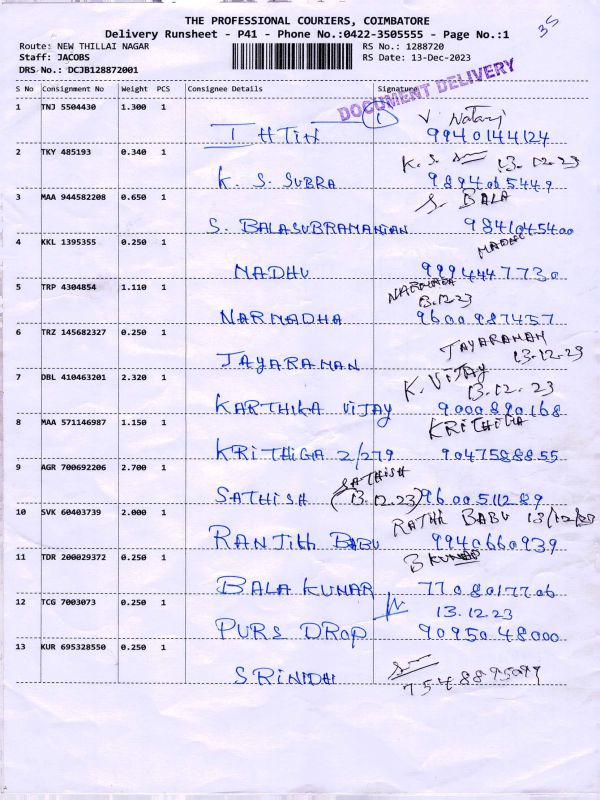 THE PROFESSIONAL COURIERS, COIMBATORE
35
Delivery Runsheet - P41 - Phone No.:0422-3505555 - Page No.:1
Route: NEW THILLAI NAGAR RS No.: 1288720
Staff: JACOBS RS Date: 13-Dec-2023
DRS No.: DCJB128872001
DOCUMENT DELIVERY
S No Consignment No Weight PCS Consignee Details Signature
1 TNJ 5504430 1.300 1 1 V Nataraj
9940144124
2 TKY 485193 0.340 1 K. S. 13.12.23
K. S. SUBRA 9894065449
3 MAA 944582208 0.650 1 S. BALA
S. BALASUBRAMANIAN 9841045400
4 KKL 1395355 0.250 1 MADHU
MADHU 9994447730
5 TRP 4304854 1.110 1 NARMADA
13.12.23
NARMADHA 9600987457
6 TRZ 145682327 0.250 1 JAYARAMAN
JAYARAMAN 13.12.23
7 DBL 410463201 2.320 1 K. VIJAY
13.12.23
KARTHIKA VIJAY 9000890168
8 MAA 571146987 1.150 1 KRITHIGA
KRITHIGA 2/279 9047588855
9 AGR 700692206 2.700 1 SATHISH
SATHISH (13.12.23) 9600511289
10 SVK 60403739 2.000 1 RATHI BABU 13/12/23
RANJITH BABU 9940660939
11 TDR 200029372 0.250 1 B KUMAR
BALA KUMAR 7708017706
12 TCG 7003073 0.250 1 13.12.23
PURS DROP 9095048000
13 KUR 695328550 0.250 1
SRINIDHI 7548895099